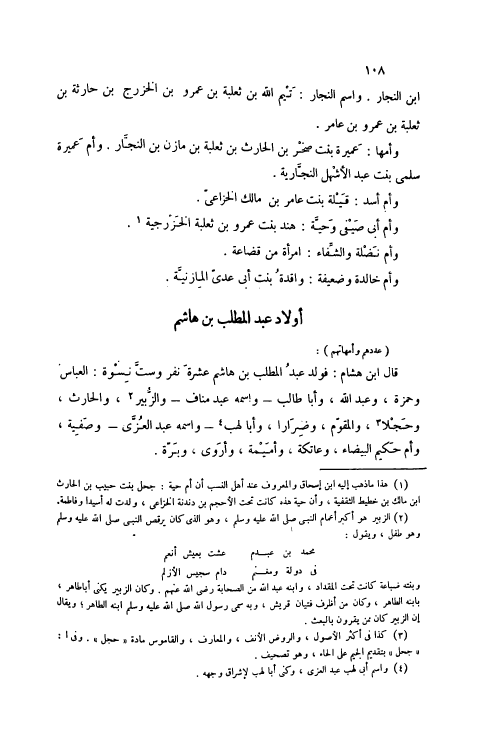 ١٠٨
ابن النجار . واسم النجار : تَيْم الله بن ثعلبة بن عمرو بن الخزرج بن حارثة بن
ثعلبة بن عمرو بن عامر .
وأمها : عَميرة بنت صخْر بن الحارث بن ثعلبة بن مازن بن النجَّار . وأم عَميرة
سلمى بنت عبد الأشْهل النجَّارية .
وأم أسد : قَيْلة بنت عامر بن مالك الخزاعىّ .
وأم أبى صَيْفى وَحيَّة : هند بنت عمرو بن ثعلبة الخَزْرجية ١ .
وأم نَضْلة والشَّفاء : امرأة من قضاعة .
وأم خالدة وضعيفة : واقدةُ بنت أبى عدىّ المازنيَّة .
أولاد عبد المطلب بن هاشم
( عددهم وأمهاتهم ) :
قال ابن هشام : فولد عبدُ المطلب بن هاشم عشرةَ نفر وستَّ نِسْوة : العباس
وحمزة ، وعبد الله ، وأبا طالب – واسمه عبد مناف – والزُّبير ٢ ، والحارث ،
وحَجْلا٣ ، والمقوّم ، وضِرَارا ، وأبا لهب٤ – واسمه عبد العزَّى – وصَفية ،
وأم حَكيم البيضاء ، وعاتكة ، وأمَيْمة ، وأروَى ، وبَرّة .
(١) هذا ماذهب إليه ابن إسحاق والمعروف عند أهل النسب أن أم حية : جحل بنت حبيب بن الحارث
ابن مالك بن خطيط الثقفية ، وأن حية هذه كانت تحت الأحجم بن دندنة الخزاعى ، ولدت له أسيدا وفاطمة.
(٢) الزبير هو أكبر أعمام النبى صلى الله عليه وسلم ، وهو الذى كان يرقص النبى صلى الله عليه وسلم
وهو طفل ، ويقول :
محمد بن عبدم    عشت بعيش أنعم
فى دولة ومغنم    دام سجيس الأزلم
وبنته ضباعة كانت تحت المقداد ، وابنه عبد الله من الصحابة رضى الله عنهم . وكان الزبير يكنى أباطاهر ،
بابنه الطاهر ، وكان من أظرف فتيان قريش ، وبه سمى رسول الله صلى الله عليه وسلم ابنه الطاهر؛ ويقال
إن الزبير كان ممن يقرون بالبعث .
(٣) كذا فى أكثر الأصول ، والروض الأنف ، والمعارف ، والقاموس مادة « حجل » . وفى ا :
« جحل » بتقديم الجيم على الحاء ، وهو تصحيف .
(٤) واسم أبى لهب عبد العزى ، وكنى أبا لهب لإشراق وجهه .